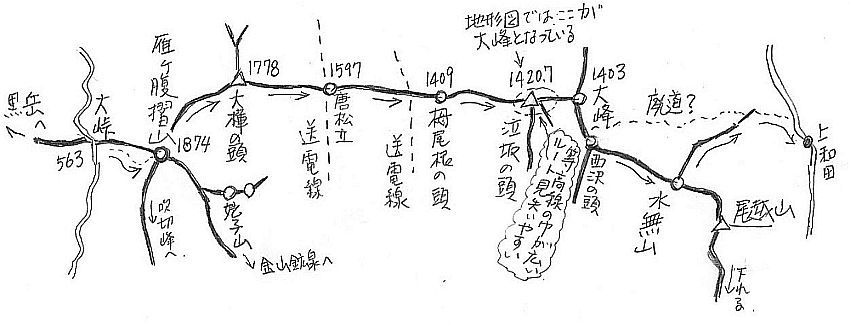 黒岳へ
563
大峠
雁ヶ腹摺山
1874
吹切峰へ
姥子山
金山鉱泉へ
1778
大樺の頭
1597
唐松立
送電線
1409
栂尾根の頭
送電線
地形図では、ここが
大峰となっている
1420.7
泣坂の頭
等高線の巾が広い
ルート見失いやすい
1403
大峰
西沢の頭
廃道?
水無山
尾越山
下れる
上和田